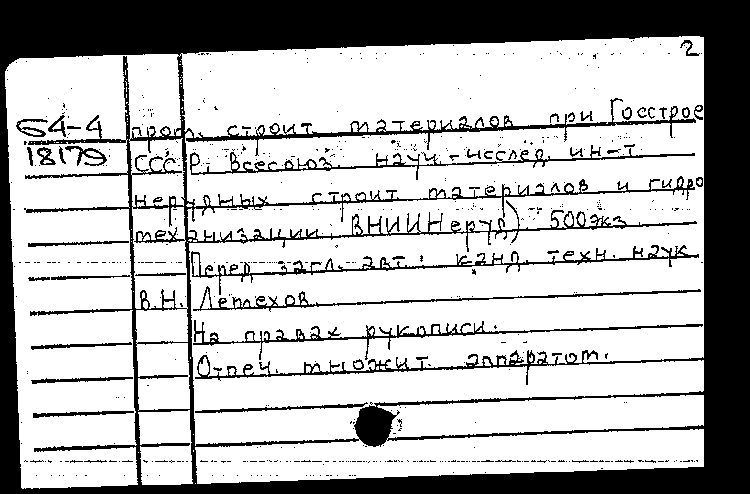 2
64-4 пром. строит. материалов при Госстрое
18179 СССР, Всесоюз. науч-исслед. ин-т
нерудных строит материалов и гидро
механизации, ВНИИНеруд) 500экз
Перед загл. авт.: канд. техн. наук
В.Н. Летехов.
На правах рукописи.
Отпеч. множит. аппаратом.